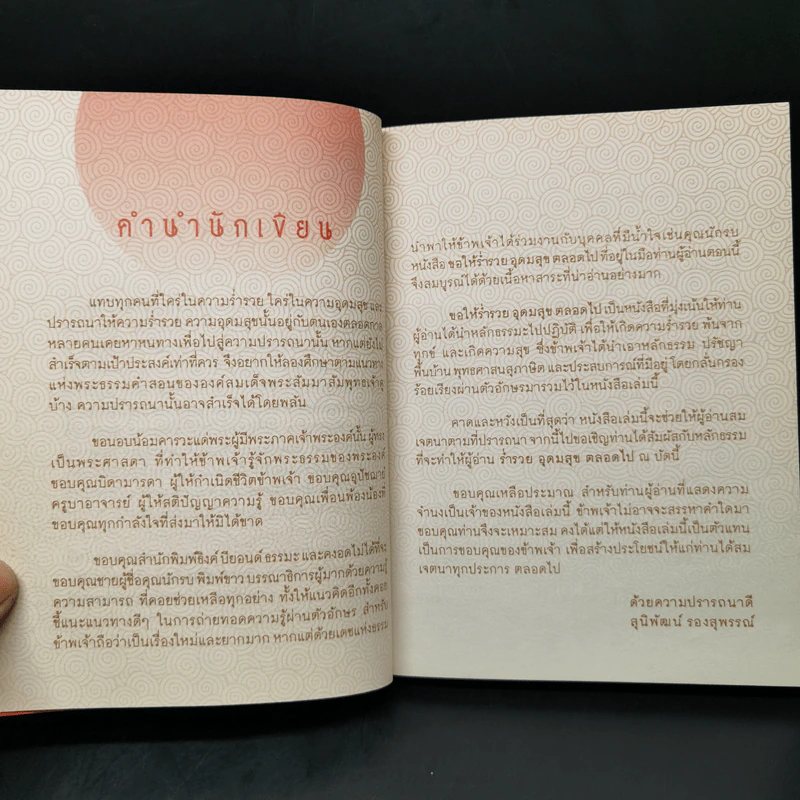 คำนำนักเขียน
แทบทุกคนที่ใคร่ในความร่ำรวย ใคร่ในความอุดมสุข และ
ปรารถนาให้ความร่ำรวย ความอุดมสุขนั้นอยู่กับตนเองตลอดกาล
หลายคนเคยหาหนทางเพื่อไปสู่ความปรารถนานั้น หากแต่ยังไม่
สำเร็จตามเป้าประสงค์เท่าที่ควร จึงอยากให้ลองศึกษาตามแนวทาง
แห่งพระธรรมคำสอนขององค์สมเด็จพระสัมมาสัมพุทธเจ้าดู
บ้าง ความปรารถนานั้นอาจสำเร็จได้โดยพลัน
ขอนอบน้อมคารวะแด่พระผู้มีพระภาคเจ้าพระองค์นั้น ผู้ทรง
เป็นพระศาสดา ที่ทำให้ข้าพเจ้ารู้จักพระธรรมของพระองค์
ขอบคุณบิดามารดา ผู้ให้กำเนิดชีวิตข้าพเจ้า ขอบคุณอุปัชฌาย์
ครูบาอาจารย์ ผู้ให้สติปัญญาความรู้ ขอบคุณเพื่อนพ้องน้องพี่
ขอบคุณทุกกำลังใจที่ส่งมาให้มิได้ขาด
ขอบคุณสำนักพิมพ์ธิงค์ บียอนด์ ธรรมะ และคงอดไม่ได้ที่จะ
ขอบคุณชายผู้ชื่อคุณนักรบ พิมพ์ขาว บรรณาธิการผู้มากด้วยความรู้
ความสามารถ ที่คอยช่วยเหลือทุกอย่าง ทั้งให้แนวคิดอีกทั้งคอย
ชี้แนะแนวทางดีๆ ในการถ่ายทอดความรู้ผ่านตัวอักษร สำหรับ
ข้าพเจ้าถือว่าเป็นเรื่องใหม่และยากมาก หากแต่ด้วยเดชแห่งธรรม
นำพาให้ข้าพเจ้าได้ร่วมงานกับบุคคลที่มีน้ำใจเช่นคุณนักรบ
หนังสือ ขอให้ร่ำรวย อุดมสุข ตลอดไป ที่อยู่ในมือท่านผู้อ่านตอนนี้
จึงสมบูรณ์ได้ด้วยเนื้อหาสาระที่น่าอ่านอย่างมาก
ขอให้ร่ำรวย อุดมสุข ตลอดไป เป็นหนังสือที่มุ่งเน้นให้ท่าน
ผู้อ่านได้นำหลักธรรมะไปปฏิบัติ เพื่อให้เกิดความร่ำรวย พ้นจาก
ทุกข์ และเกิดความสุข ซึ่งข้าพเจ้าได้นำเอาหลักธรรม ปรัชญา
พื้นบ้าน พุทธศาสนสุภาษิต และประสบการณ์ที่มีอยู่ โดยกลั่นกรอง
ร้อยเรียงผ่านตัวอักษรมารวมไว้ในหนังสือเล่มนี้
คาดและหวังเป็นที่สุดว่า หนังสือเล่มนี้จะช่วยให้ผู้อ่านสม
เจตนาตามที่ปรารถนา จากนี้ไปขอเชิญท่านได้สัมผัสกับหลักธรรม
ที่จะทำให้ผู้อ่าน ร่ำรวย อุดมสุข ตลอดไป ณ บัดนี้
ขอบคุณเหลือประมาณ สำหรับท่านผู้อ่านที่แสดงความ
จำนงเป็นเจ้าของหนังสือเล่มนี้ ข้าพเจ้าไม่อาจจะสรรหาคำใดมา
ขอบคุณท่านจึงจะเหมาะสม คงได้แต่ให้หนังสือเล่มนี้เป็นตัวแทน
เป็นการขอบคุณของข้าพเจ้า เพื่อสร้างประโยชน์ให้แก่ท่านได้สม
เจตนาทุกประการ ตลอดไป
ด้วยความปรารถนาดี
สุนิพัฒน์ รองสุพรรณ์